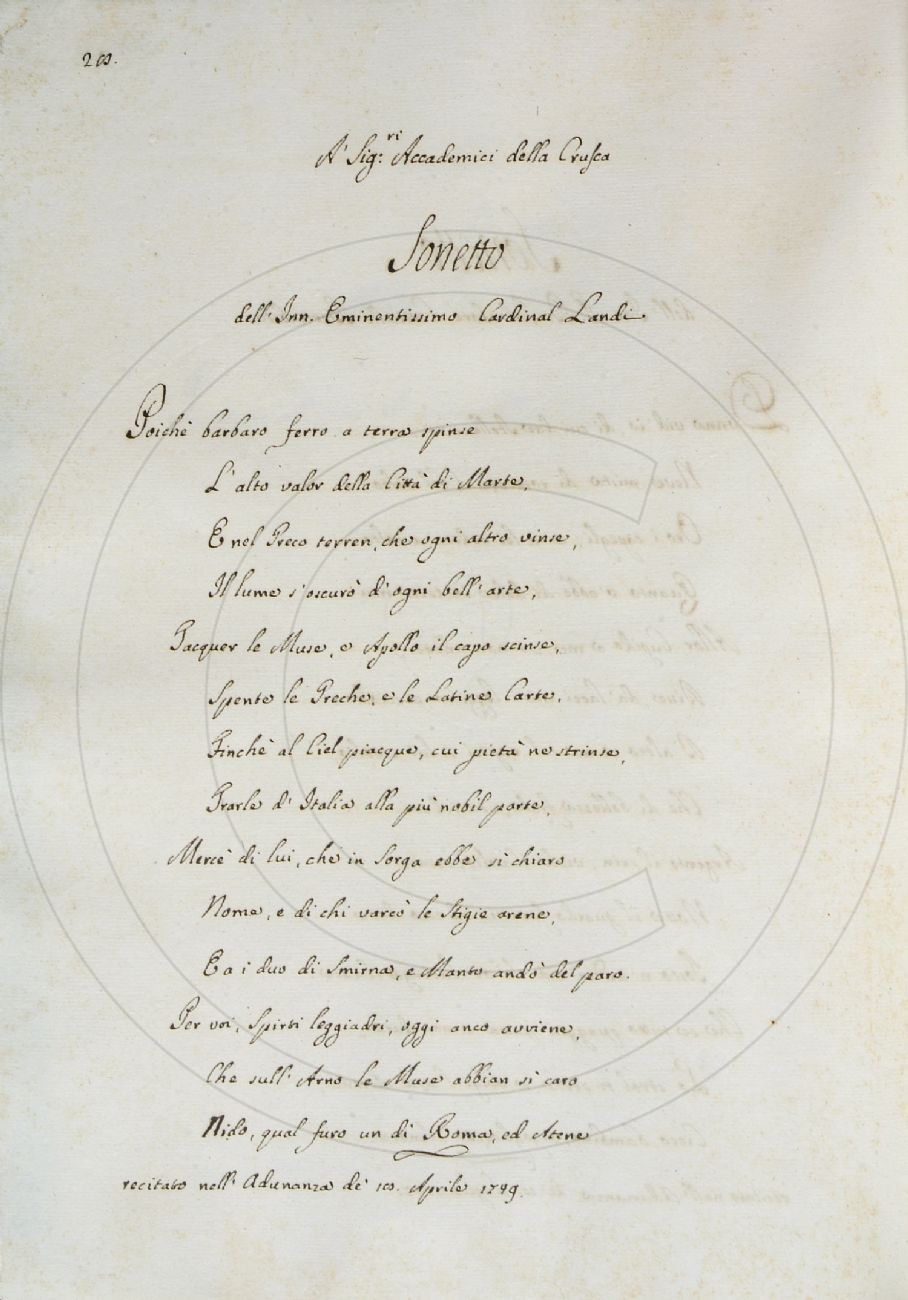 A' Sig:ri Accademici della Crusca
Sonetto
dell' Inn. Eminentissimo Cardinal Landi
Poichè barbaro ferro a terra spinse
L' alto valor della Città di Marte,
E nel Greco terren, che ogni altro vinse,
Il lume s' oscurò d' ogni bell' arte,
Tacquer le Muse, e Apollo il capo scinse,
Spente le Greche, e le Latine Carte,
Finchè al Ciel piacque, cui pietà ne strinse,
Trarle d' Italia alla più nobil parte,
Mercè di lui, che in Sorga ebbe sì chiaro
Nome, e di chi varcò le Stigie arene,
E a i duo di Smirna, e Manto andò del paro.
Per voi, Spirti leggiadri, oggi anco avviene,
Che sull' Arno le Muse abbian sì caro
Nido, qual furo un dì Roma, ed Atene
recitato nell' Adunanza de' 10. Aprile 1749.